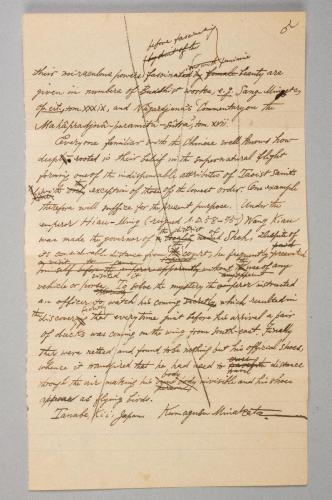 before fascinating
their miraculous powers fascinated by female beauty are
given in numbers of Buddhist works, e.g. Sang-
Op. cit., tom. XXXIX, and Nāgārdjuna's Commentary on the
Mahāpradjnā-pāramitā-Sūtra, tom. XVII.
Everyone familiar with the Chinese well knows how
deep rooted is their belief in the supernatural flight
forming one of the indispensable attributes of Taoist Saints
with exception of those of the lowest order. One example
therefore will suffice for the present purpose. Under the
emperor Hiau-Ming (reigned A.D. 58-75) Wang Kiau
the district
was made the governor of Sheh. Despite of
its considerable distance from the court, he frequently
himself before the emperor without use of any
visited it
vehicle or horse. To solve the mystery the emperor instructed
an officer to watch his coming which resulted in
the discovering that everytime just before his arrival a pair
of ducks was coming on the wing from South-east. Finally
they were netted, and found to be nothing but his official shoes,
whence it transpired that he had used to distance
travel
through the air, making his invisible and his shoes
body
appear as flying birds.
Tanabe, Kii, Japan Kumagusu Minakata